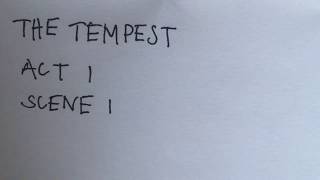 THE TEMPEST
ACT 1
SCENE 1